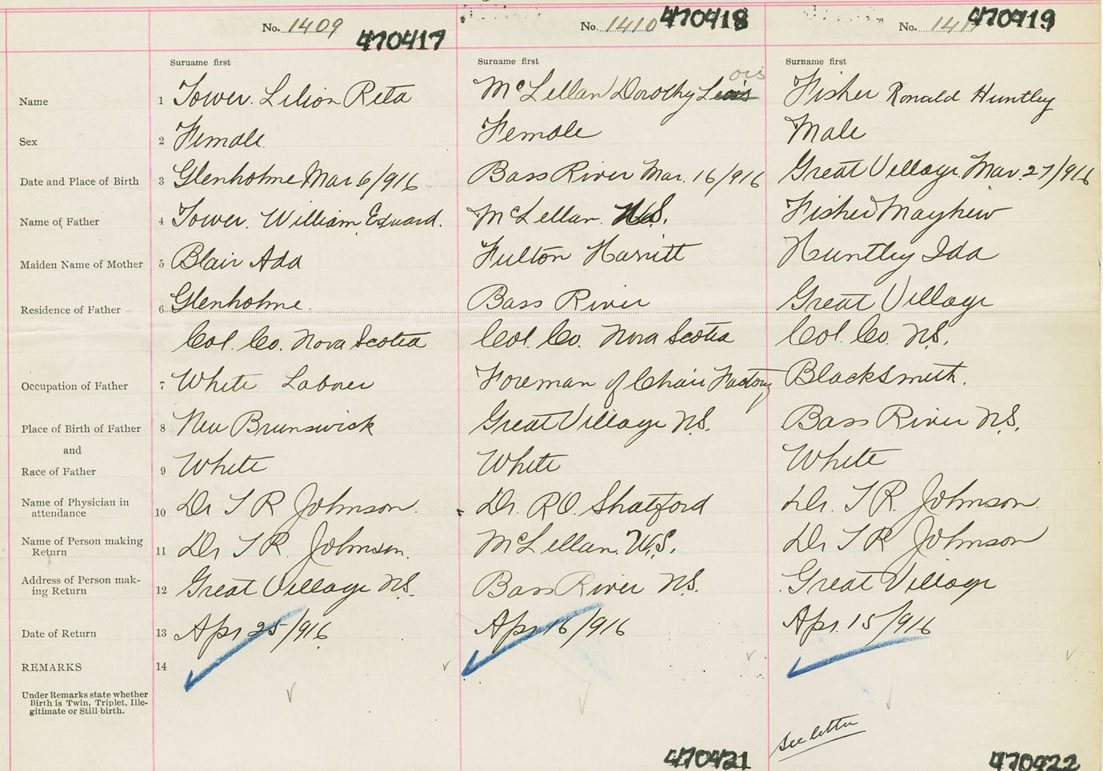 No. 1409 470417 No. 1410 470418 No. 470419
Surname first Surname first Surname first
ois
Name 1 Tower. Lilion Reta McLellan Dorothy Fisher Ronald Huntley
Sex 2 Female. Female Male
Date and Place of Birth 3 Glenholme Mar 6/916 Bass River Mar. 16/916 Great Village Mar. 27/916
Name of Father 4 Tower. William Edward. McLellan. W.S. Fisher Mayhew
Maiden Name of Mother 5 Blair Ada Fulton Harriett Huntley Ida
Residence of Father 6 Glenholme. Bass River Great Village
Col. Co. Nova Scotia Col. Co. Nova Scotia Col. Co. N.S.
Occupation of Father 7 White Laborer Foreman of Chair Factory Blacksmith.
Place of Birth of Father 8 New Brunswick Great Village N.S. Bass River N.S.
and
Race of Father 9 White White White
Name of Physician in
attendance 10 Dr T R Johnson. Dr. R.O. Shatford Dr. T R. Johnson
Name of Person making
Return 11 Dr T R. Johnson. McLellan. W.S. Dr T R Johnson
Address of Person mak-
ing Return 12 Great Village N.S. Bass River N.S. Great Village
Date of Return 13 Apr 25/916 Apr 16/916 Apr. 15/916
REMARKS 14
Under Remarks state whether
Birth is Twin, Triplet, Ille-
gitimate or Still-birth.
See letter
470421 470422